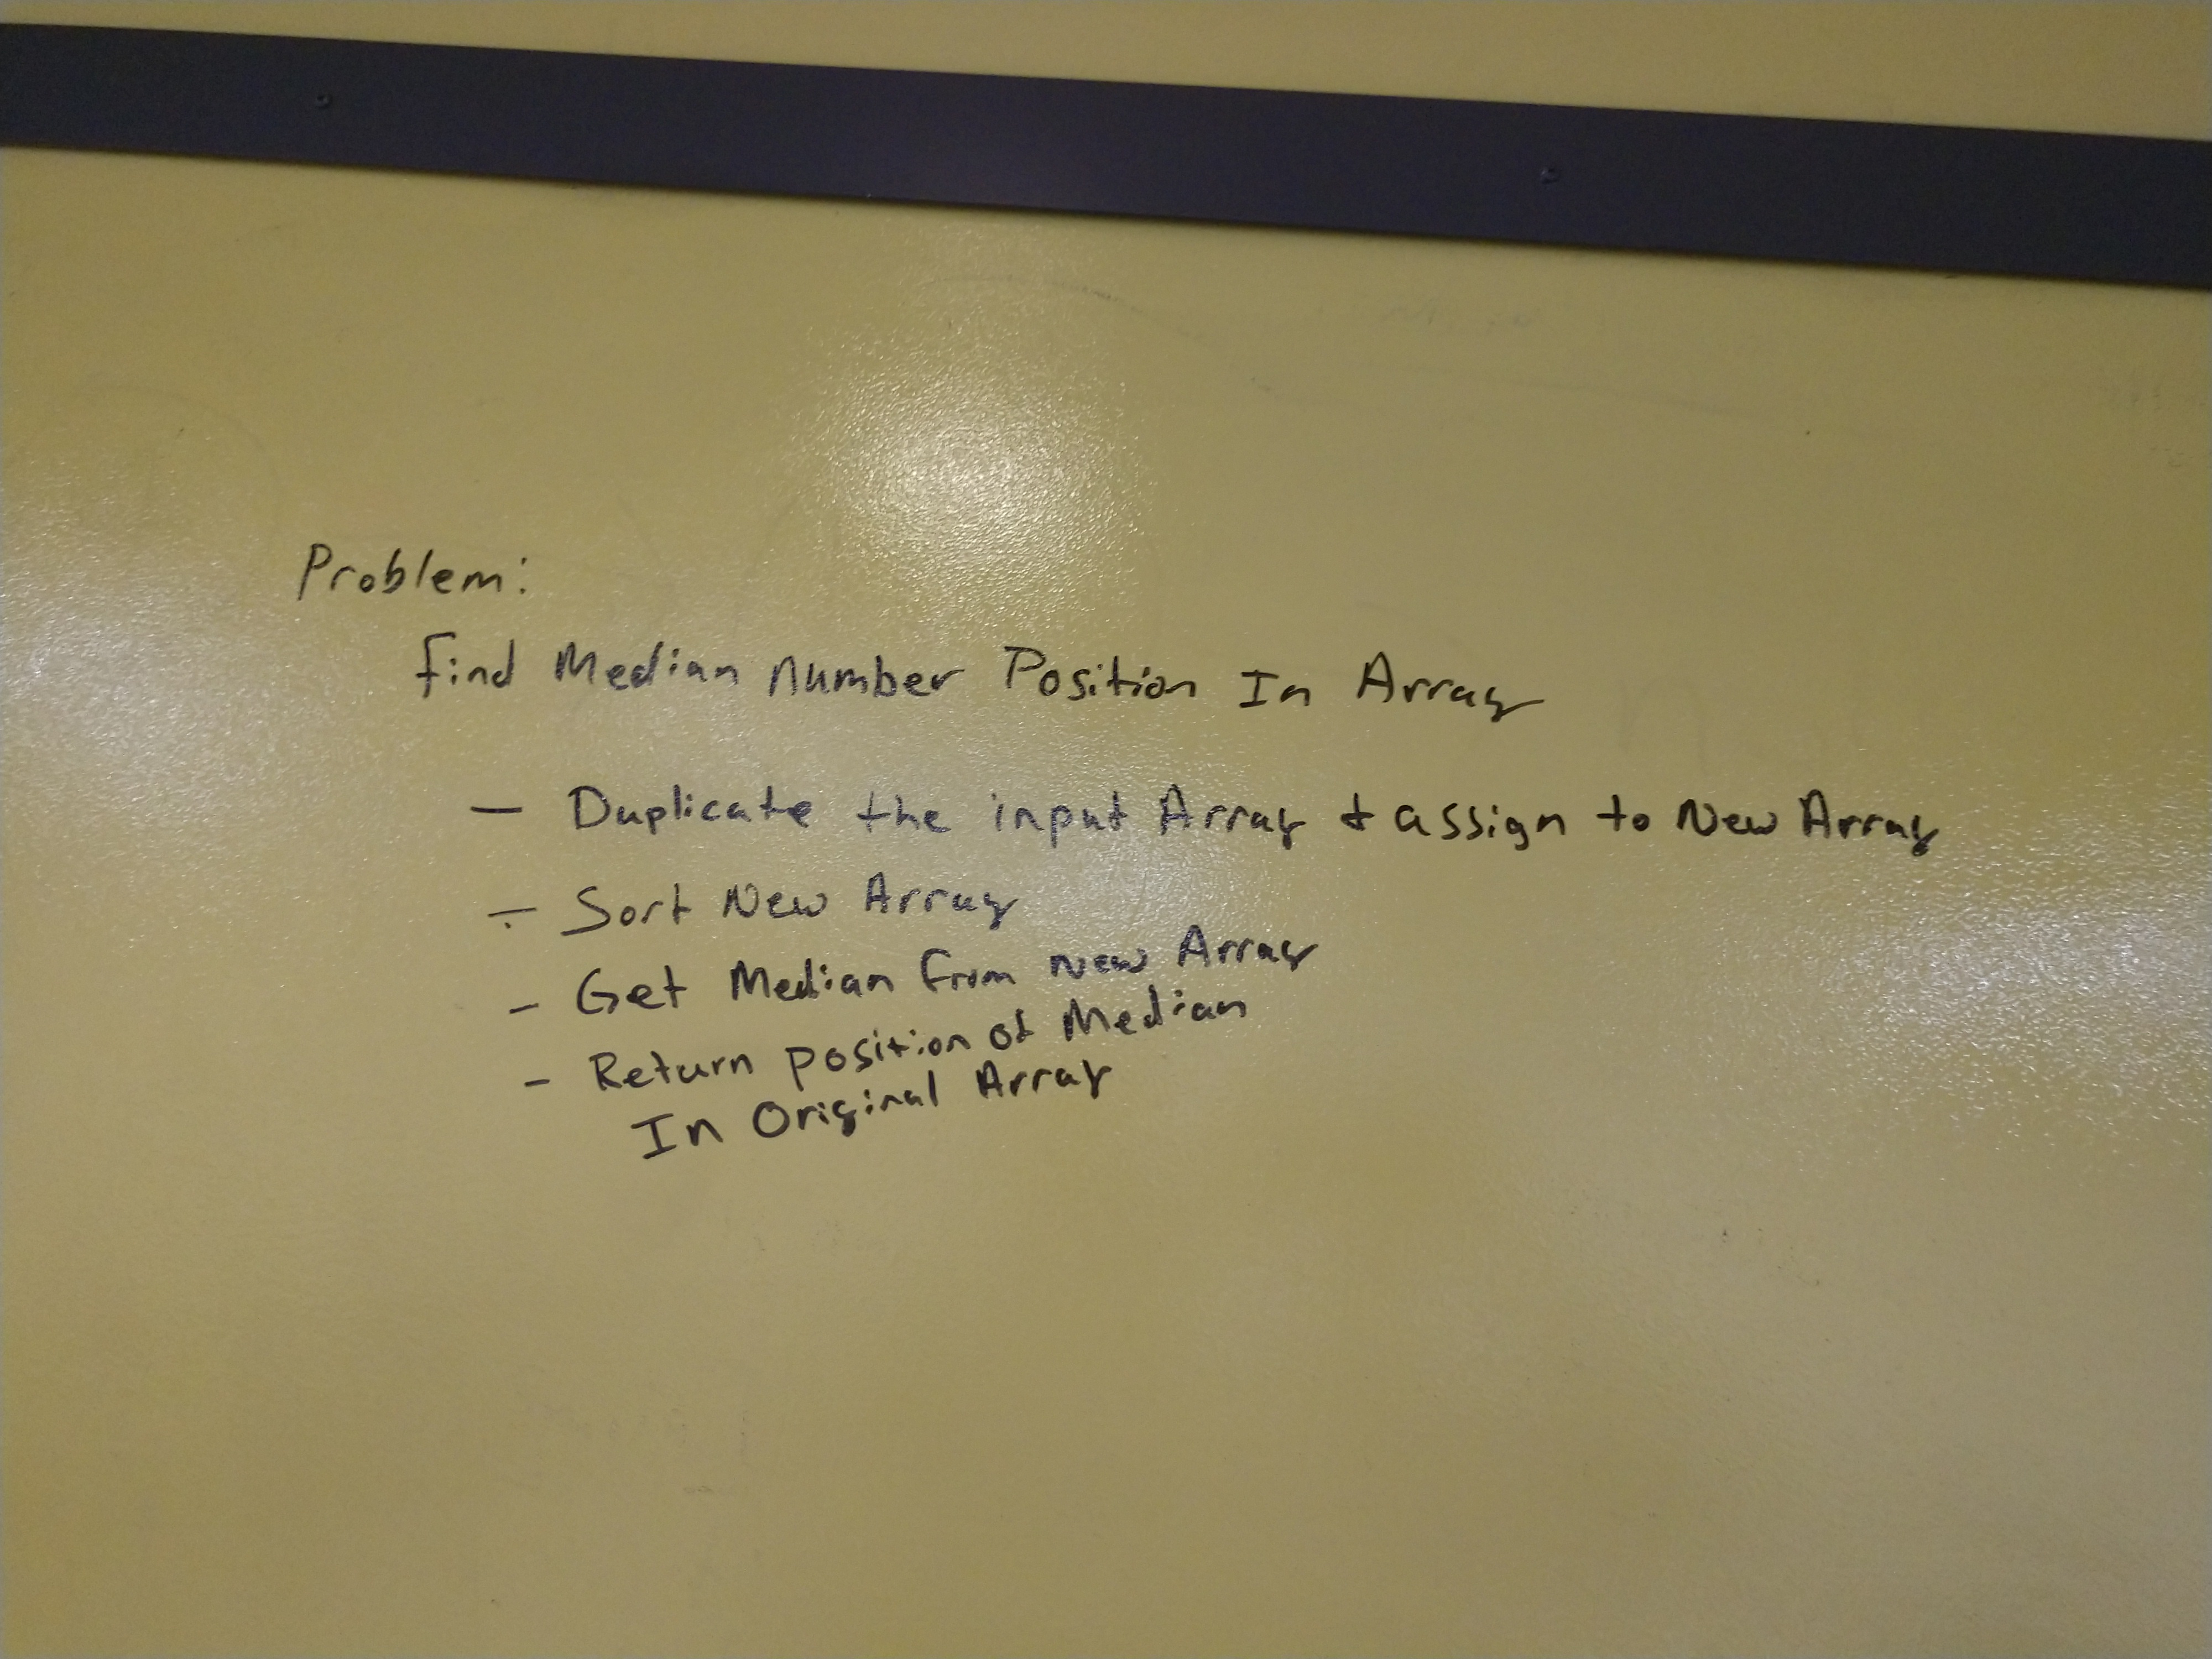 Problem:
Find Median Number Position In Array
- Duplicate the input Array & assign to New Array
- Sort New Array
- Get Median From New Array
- Return position of Median
In Original Array